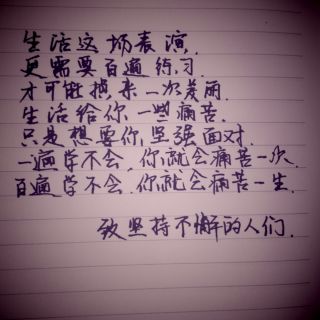 生活这场表演.
更需要百遍练习.
才可能换来一次美丽.
生活给你一些痛苦.
只是想要你坚强面对.
一遍学不会.你就会痛苦一次.
百遍学不会.你就会痛苦一生.
致坚持不懈的人们.